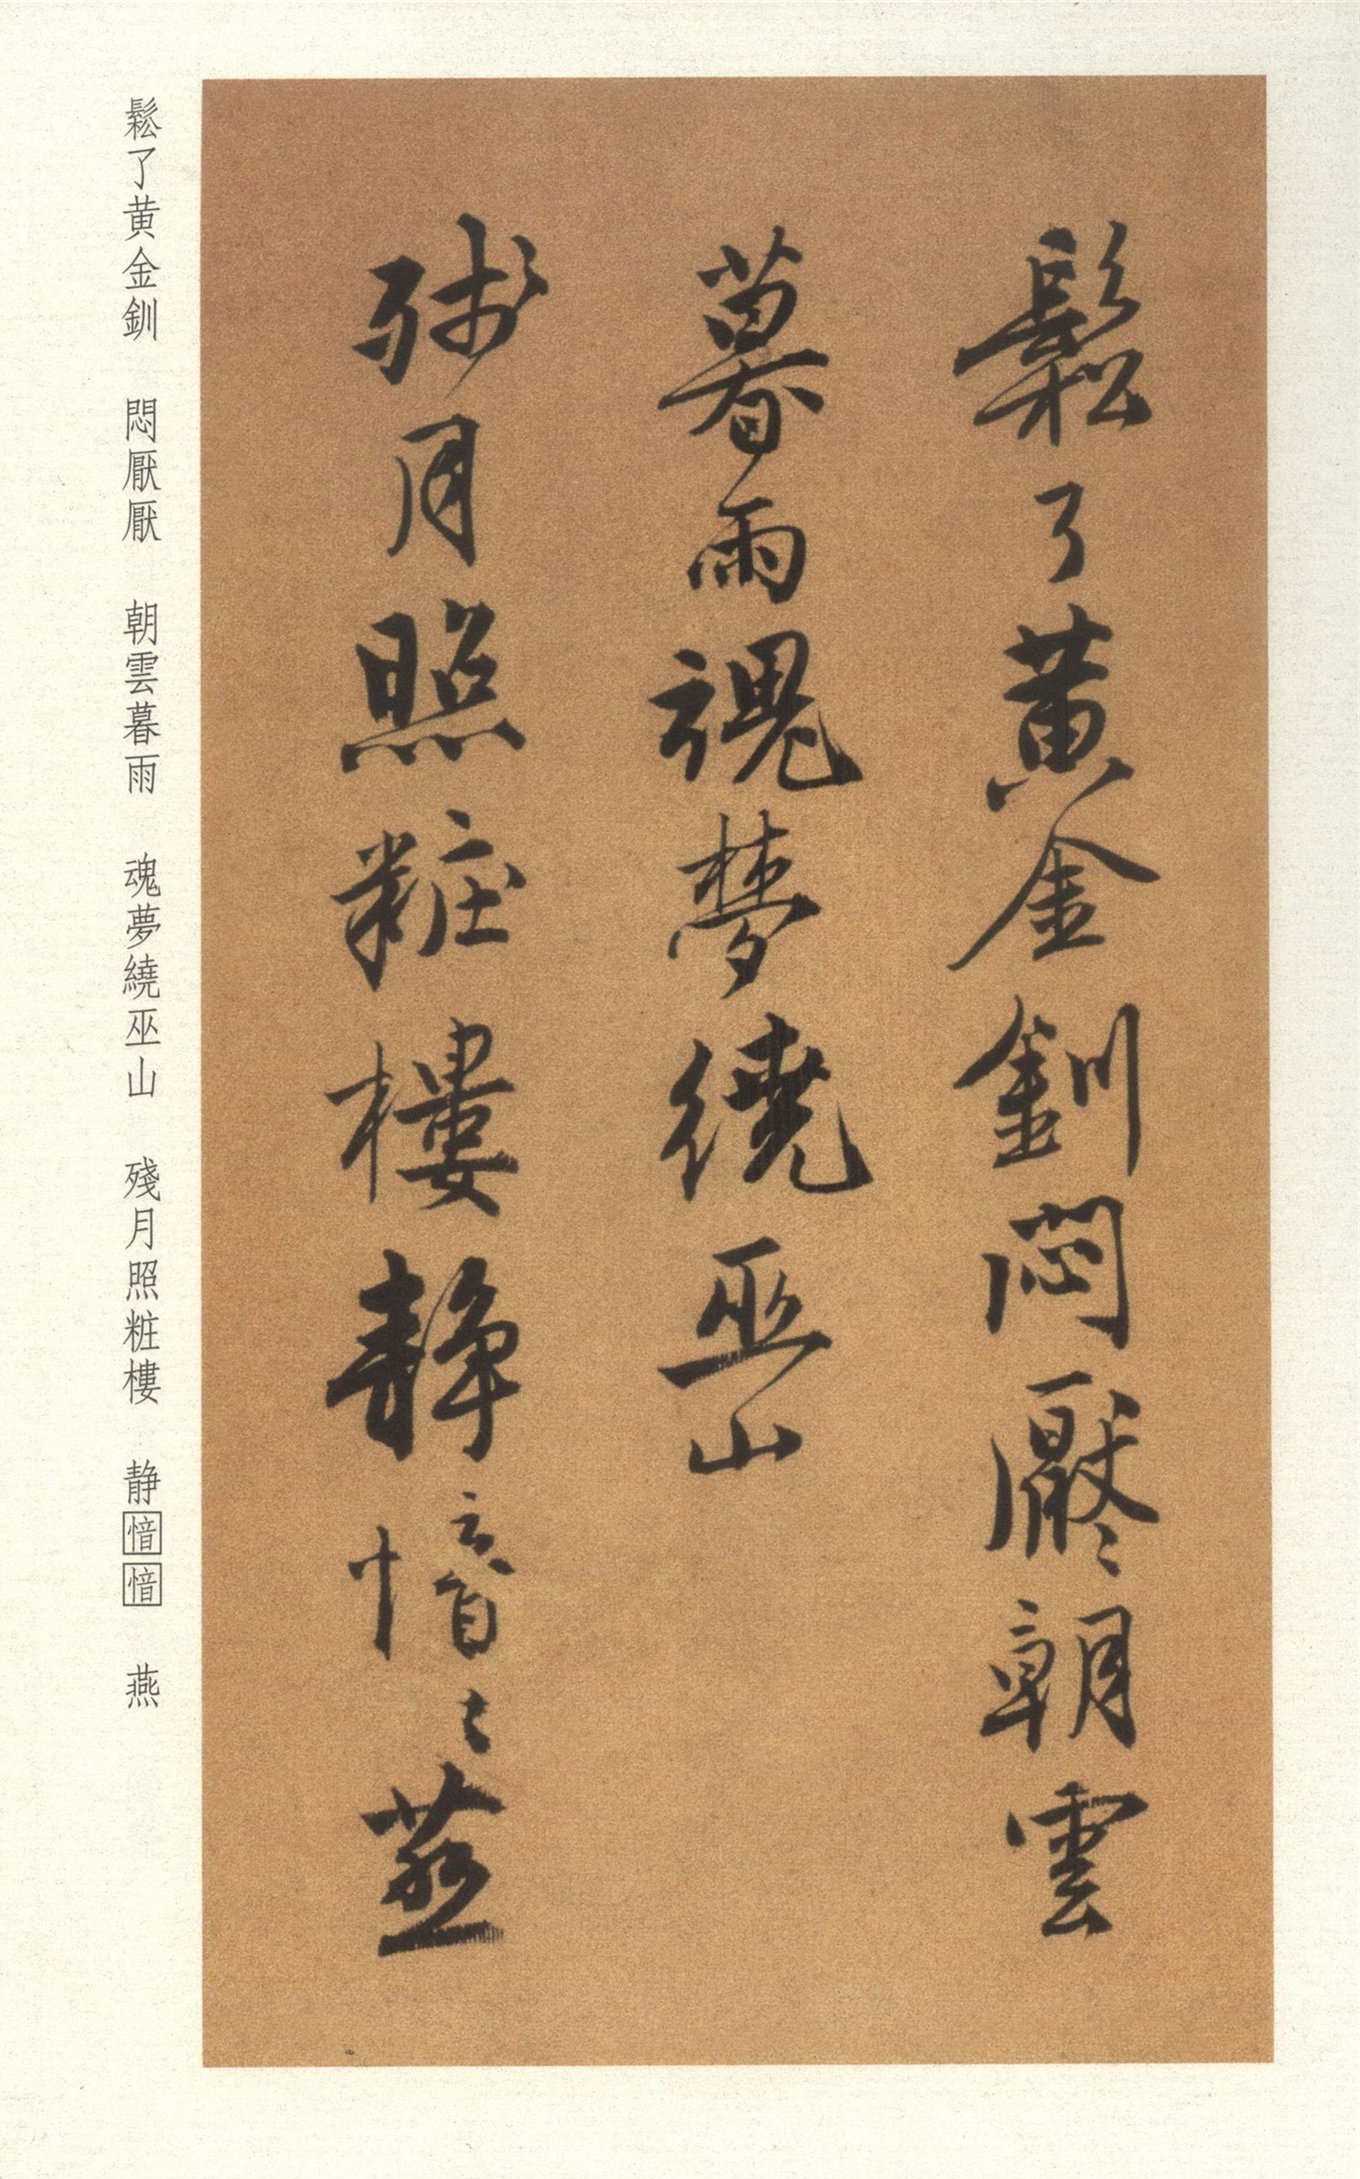 鬆了黄金釧悶厭〻朝雲
暮雨魂夢繞巫山
殘月照粧樓静愔〻燕
鬆了黄金釧　悶厭厭　朝雲暮雨　魂夢繞巫山　殘月照粧樓　静愔愔　燕